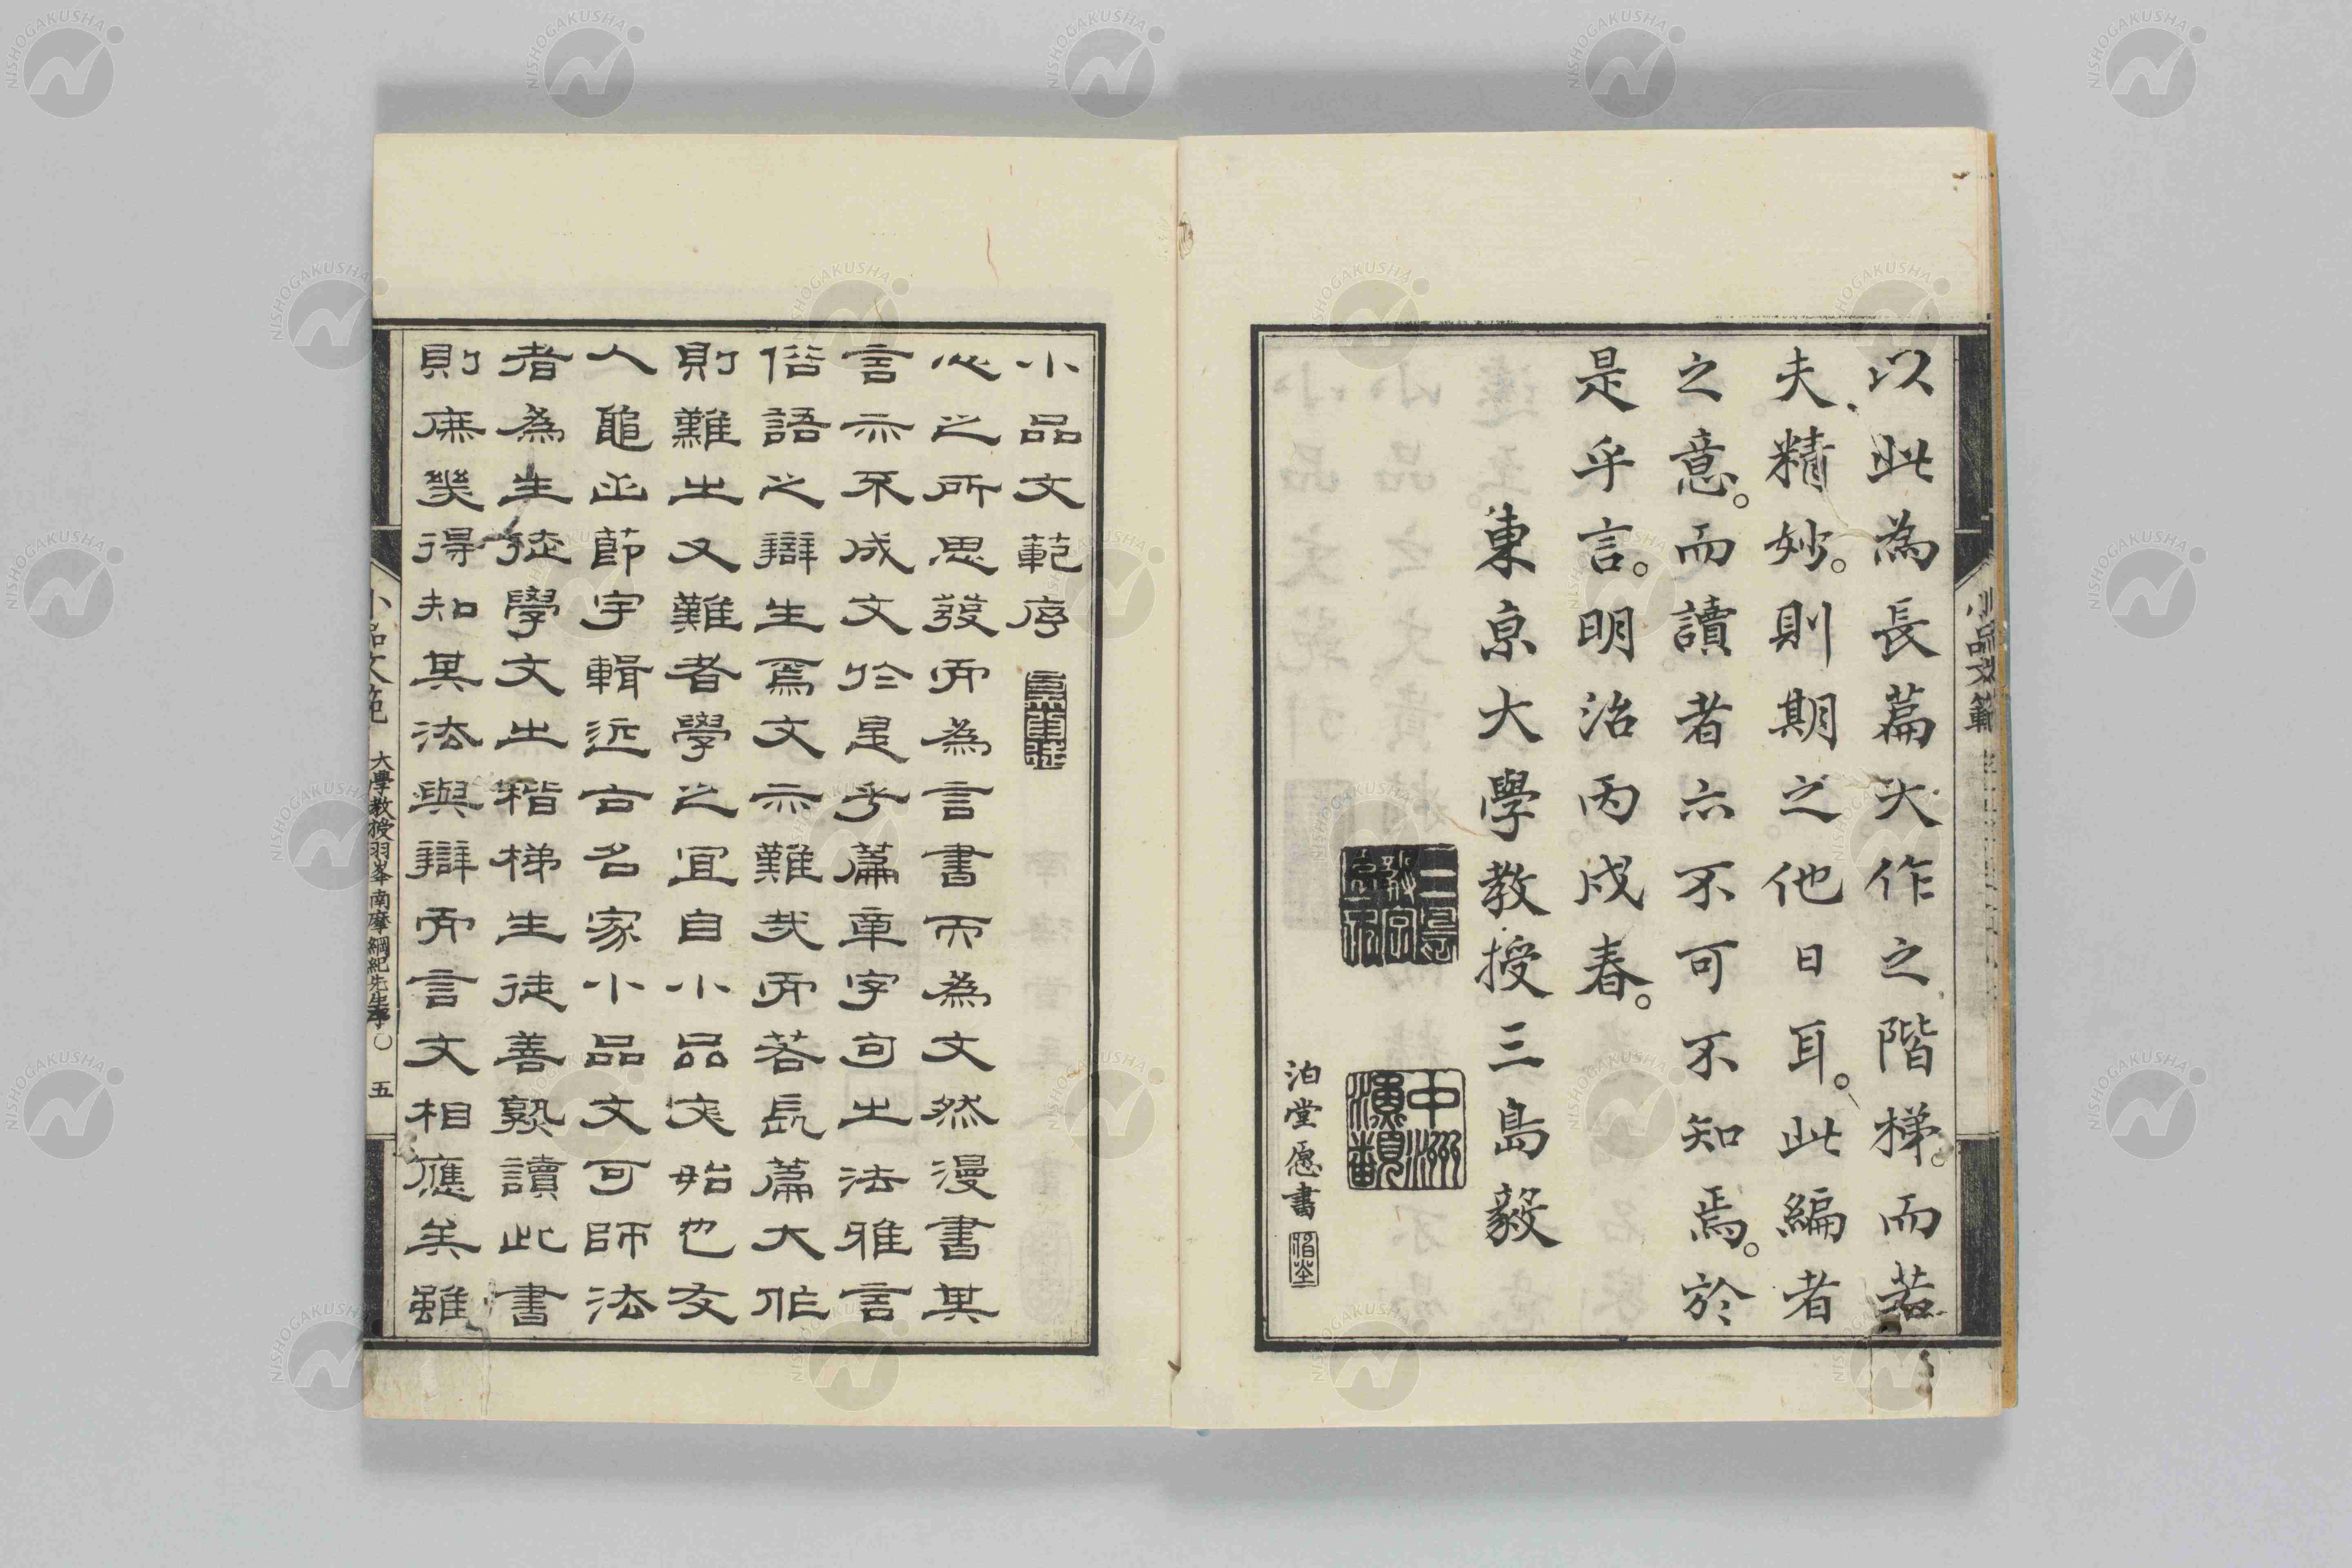 以此為長篇大作之階梯。而若
夫精妙。則期之他日耳。此編者
之意。而讀者亦不可不知焉。於
是乎言。明治丙戌春。
東京大學教授三島毅
中洲
泊堂愿書
小品文範
小品文範序
心之所思發而為言書而為文然漫書其
言亦不成文於是乎篇章字句之法雅言
俗語之辯生焉文亦難哉而若長篇大作
則難之又難者學之宜自小品文始也友
人龜山節宇輯近古名家小品文可師法
者為生徒學文之楷梯生徒善熟讀此書
則庶幾得知其法與辯而言文相應矣雖
小品文範 大學教授羽峯南摩綱紀先生序〇 五
NISHOGAKUSHA